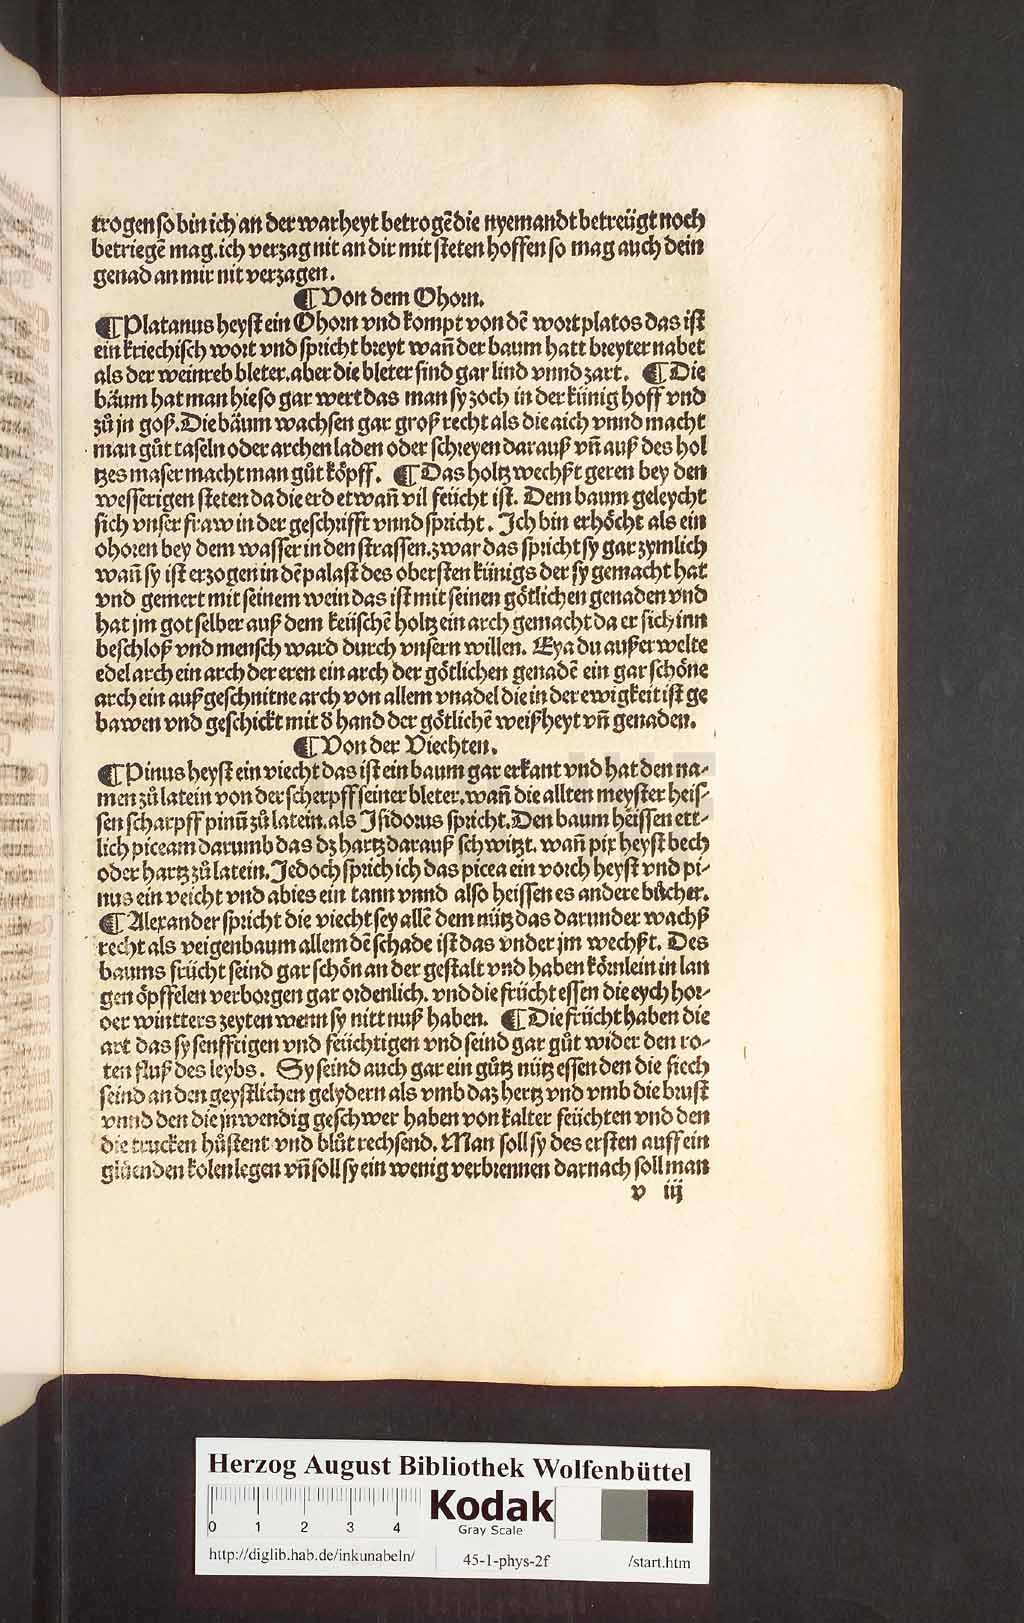 trogen so bin ich an der warheyt betrogē die nyemandt betreügt noch
betriegē mag. ich verzag nit an dir mit steten hoffen so mag auch dein
genad an mir nit verzagen.
¶ Von dem Ohorn.
¶ Platanus heyst ein Ohorn vnd kompt von dē wort platos das ist
ein kriechisch wort vnd spricht breyt wañ der baum hatt breyter nabet
als der weinreb bleter. aber die bleter sind gar lind vnnd zart. ¶ Die
bäum hat man hie so gar wert das man sy zoch in der künig hoff vnd
zů jn goß. Die bäum wachsen gar groß recht als die aich vnnd macht
man gůt tafeln oder archen laden oder schreyen darauß vñ auß des hol
tzes maser macht man gůt köpff. ¶ Das holtz wechßt geren bey den
wesserigen steten da die erd etwañ vil feücht ist. Dem baum geleycht
sich vnser fraw in der geschrifft vnnd spricht. Ich bin erhöcht als ein
ohoren bey dem wasser in den strassen. zwar das spricht sy gar zymlich
wañ sy ist erzogen in dē palast des obersten künigs der sy gemacht hat
vnd gemert mit seinem wein das ist mit seinen götlichen genaden vnd
hat jm got selber auß dem keüschē holtz ein arch gemacht da er sich inn
beschloß vnd mensch ward durch vnsern willen. Eya du außerwelte
edel arch ein arch der eren ein arch der götlichen genadē ein gar schöne
arch ein außgeschnitne arch von allem vnadel die in der ewigkeit ist ge
bawen vnd geschickt mit d̕ hand der götlichē weißheyt vñ genaden.
¶ Von der Viechten.
¶ Pinus heyst ein viecht das ist ein baum gar erkant vnd hat den na-
men zů latein von der scherpff seiner bleter. wañ die allten meyster heis-
sen scharpff pinū zů latein. als Isidorus spricht. Den baum heissen ett-
lich piceam darumb das dz hartz darauß schwitzt. wañ pix heyst bech
oder hartz zů latein. Jedoch sprich ich das picea ein vorch heyst vnd pi-
nus ein veicht vnd abies ein tann vnnd also heissen es andere bůcher.
¶ Alexander spricht die viecht sey allē dem nütz das darunder wachß
recht als veigenbaum allem dē schade ist das vnder jm wechßt. Des
baums frücht seind gar schön an der gestalt vnd haben körnlein in lan
gen öpffelen verborgen gar ordenlich. vnd die frücht essen die eych hor-
oer wintters zeyten wenn sy nitt nuß haben. ¶ Die frücht haben die
art das sy senfftigen vnd feüchtigen vnd seind gar gůt wider den ro-
ten fluß des leybs. Sy seind auch gar ein gůtz nütz essen den die siech
seind an den geystlichen gelydern als vmb daz hertz vnd vmb die brust
vnnd den die jnwendig geschwer haben von kalter feüchten vnd den
die trucken hůstent vnd blůt rechsend. Man soll sy des ersten auff ein
glüenden kolen legen vñ soll sy ein wenig verbrennen darnach soll man
v iij
Herzog August Bibliothek Wolfenbüttel
0 1 2 3 4
Kodak
Gray Scale
http://diglib.hab.de/inkunabeln/ 45-1-phys-2f /start.htm